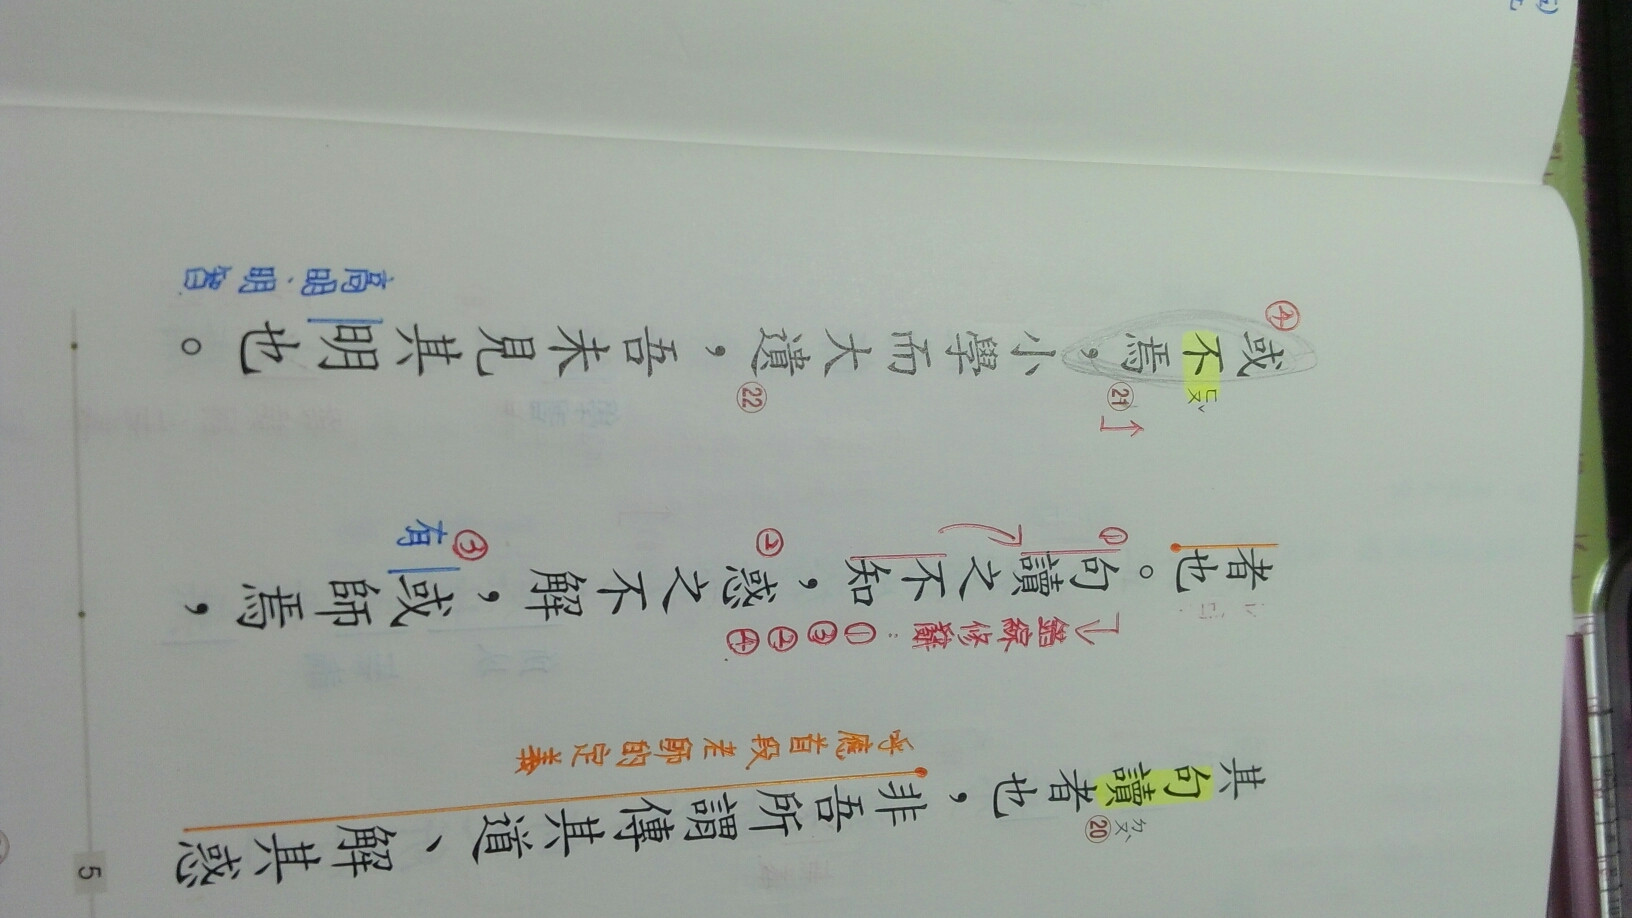 呼應首段老師的定義
其句讀者也，非吾所謂傳其道、解其惑
⑳
ㄉㄡˋ
有 ③ ② ①
者也。句讀之不知，惑之不解，或師焉，
錯綜修辭：①③②④
高明、明智
④
或不焉，小學而大遺，吾未見其明也。
ㄈㄡˇ
㉑ ㉒
5